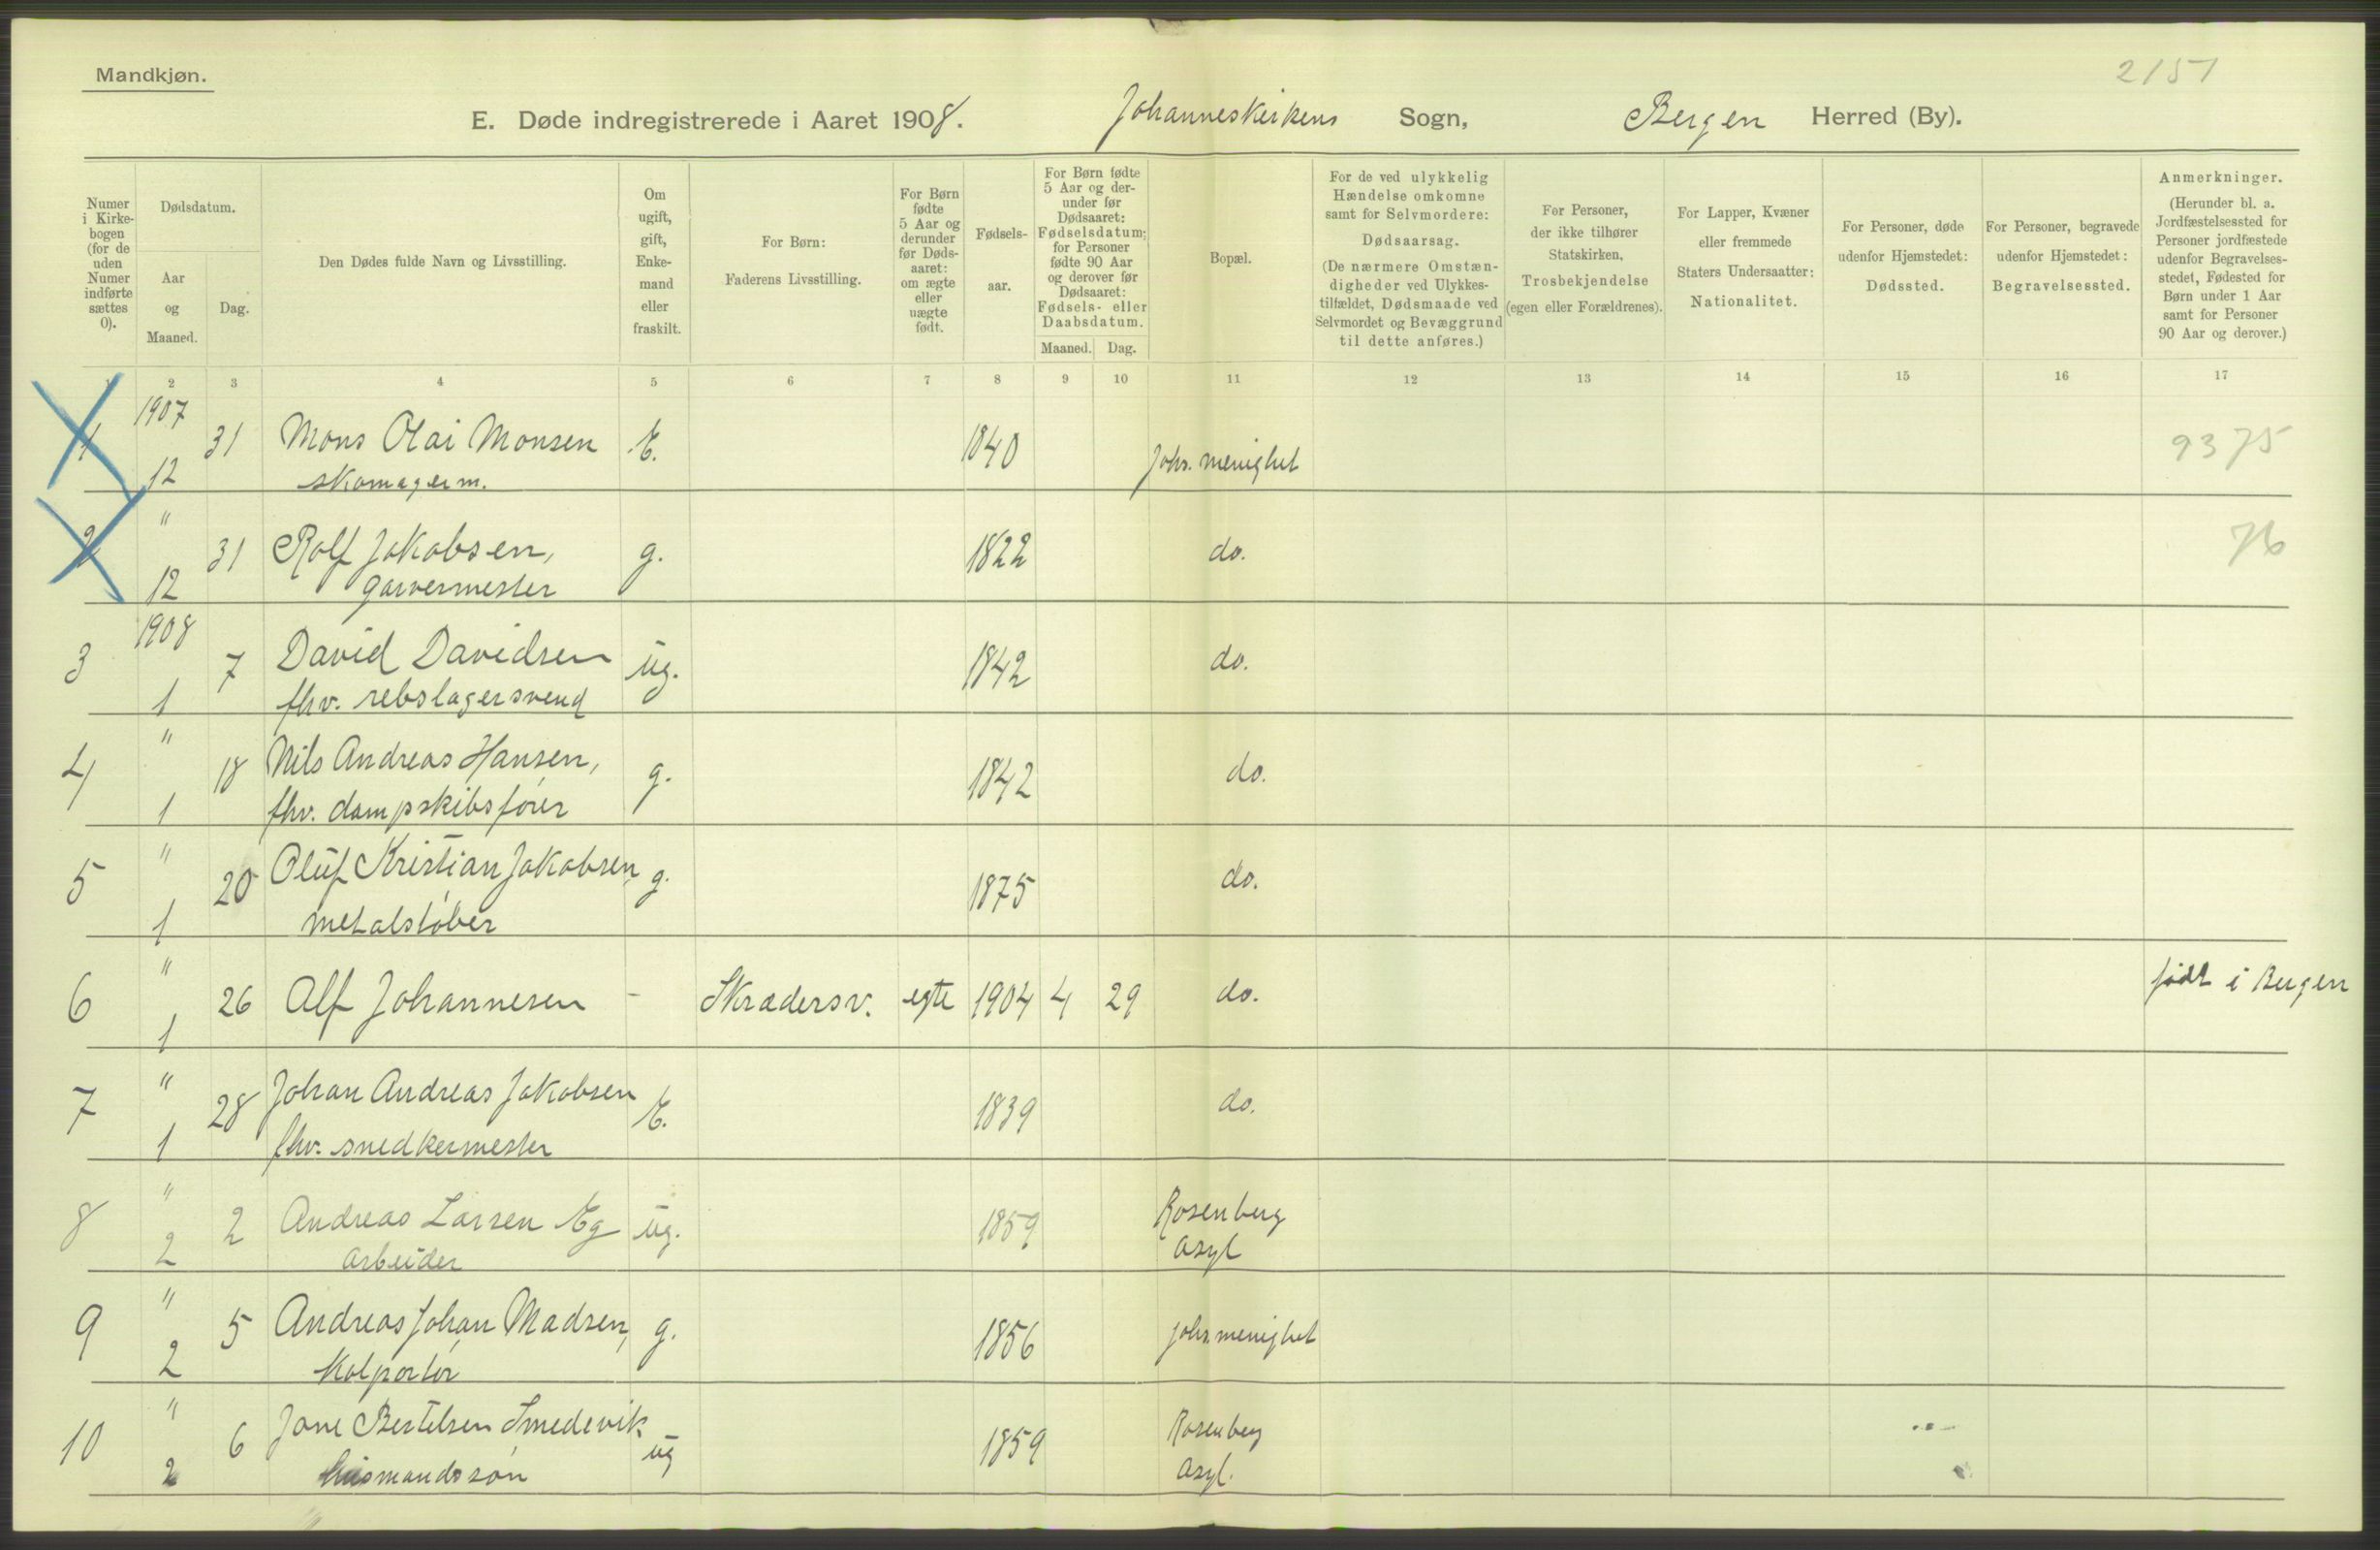 Mandkjøn.
2151
E. Døde indregistrerede i Aaret 1908. Johanneskirkens Sogn, Bergen Herred (By).
Numer i Kirkebogen (for de uden Numer indførte sættes 0).
Dødsdatum.
Aar og Maaned.
Dag.
Den Dødes fulde Navn og Livsstilling.
Om ugift, gift, Enkemand eller fraskilt.
For Børn: Faderens Livsstilling.
For Børn fødte 5 Aar og derunder før Dødsaaret: om ægte eller uægte født.
Fødselsaar.
For Børn fødte 5 Aar og derunder før Dødsaaret: Fødselsdatum; for Personer fødte 90 Aar og derover før Dødsaaret: Fødsels- eller Daabsdatum.
Maaned. Dag.
Bopæl.
For de ved ulykkelig Hændelse omkomne samt for Selvmordere: Dødsaarsag. (De nærmere Omstændigheder ved Ulykkestilfældet, Dødsmaade ved Selvmordet og Bevæggrund til dette anføres.)
For Personer, der ikke tilhører Statskirken, Trosbekjendelse (egen eller Forældrenes).
For Lapper, Kvæner eller fremmede Staters Undersaatter: Nationalitet.
For Personer, døde udenfor Hjemstedet: Dødssted.
For Personer, begravede udenfor Hjemstedet: Begravelsessted.
Anmerkninger. (Herunder bl. a. Jordfæstelsessted for Personer jordfæstede udenfor Begravelsesstedet, Fødested for Børn under 1 Aar samt for Personer 90 Aar og derover.)
1 2 3 4 5 6 7 8 9 10 11 12 13 14 15 16 17
1 1907 12 31 Mons Olai Monsen E. 1840 Johs. menighet 9375
skomagerm.
2 " 12 31 Rolf Jakobsen, g. 1822 do. 76
garvermester
3 1908 1 7 David Davidsen ug. 1842 do.
fhv. rebslagersvend
4 " 1 18 Nils Andreas Hansen, g. 1842 do.
fhv. dampskibsfører
5 " 1 20 Oluf Kristian Jakobsen, g. 1875 do.
metalstøber
6 " 1 26 Alf Johannesen - Skrædersv. egte 1904 4 29 do. født i Bergen
7 " 1 28 Johan Andreas Jakobsen E. 1839 do.
fhv. snedkermester
8 " 2 2 Andreas Larsen Eg ug. 1859 Rosenberg
arbeider asyl
9 " 2 5 Andreas Johan Madsen, g. 1856 Johs menighet
kolportør
10 " 2 6 Jone Bertelsen Smedevik ug 1859 Rosenberg
husmandssøn asyl.